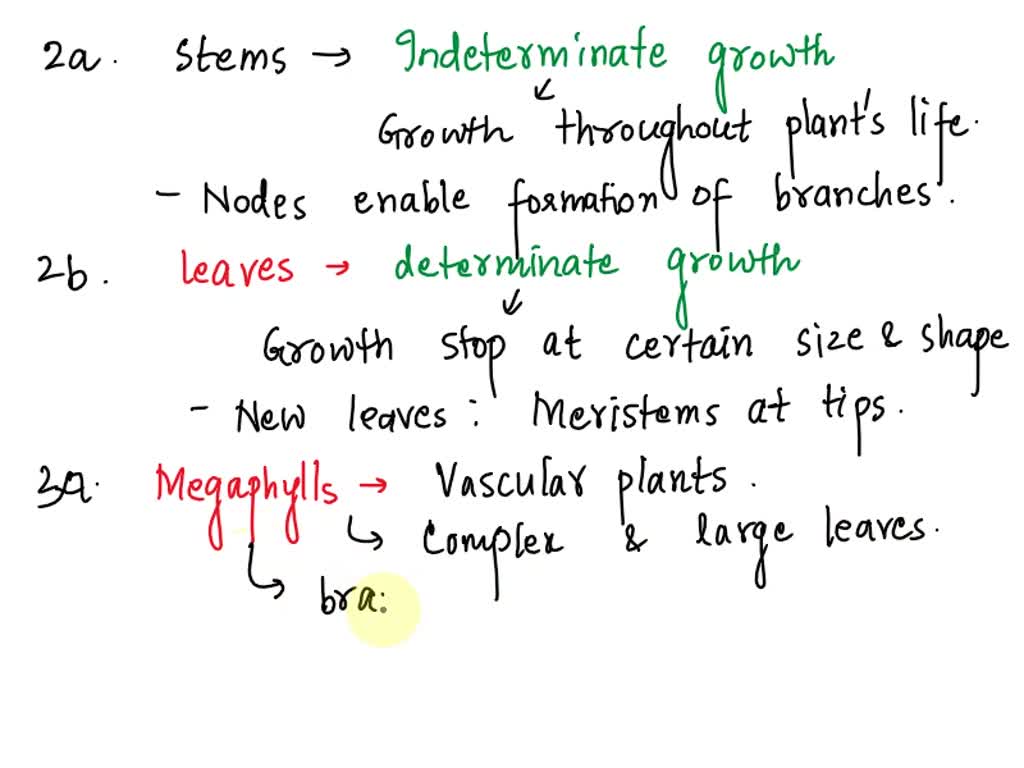 2a. Stems → Indeterminate growth
Growth throughout plant's life.
- Nodes enable formation of branches.
2b. leaves → determinate growth
Growth stop at certain size & shape
- New leaves : Meristems at tips.
3a. Megaphylls → Vascular plants.
Complex & large leaves.
bra